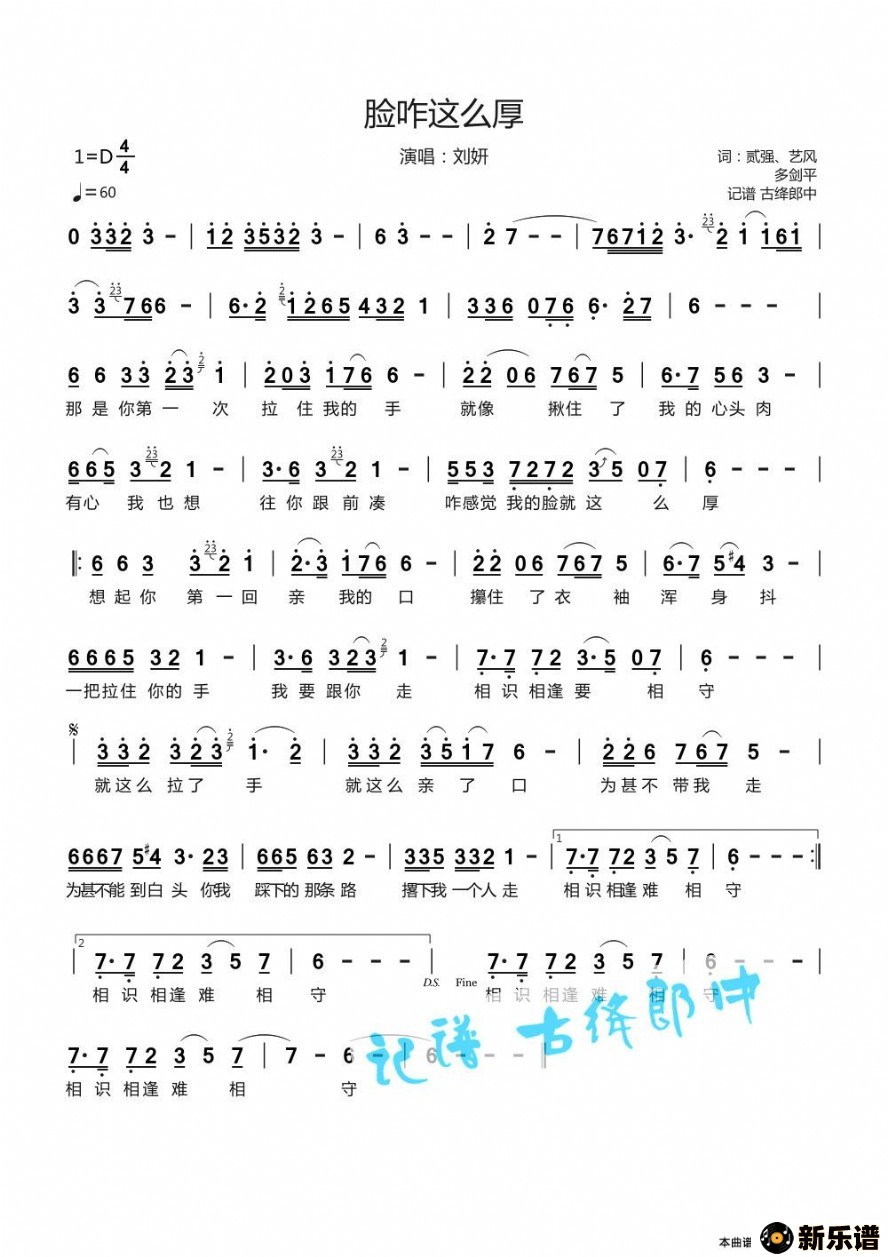 脸咋这么厚
1=D 4/4 演唱：刘妍 词：贰强、艺风
多剑平
♩=60 记谱 古绛郎中
0 332 3 - | 12 3532 3 - | 6 3 - - | 2 7 - - | 76712 3· 23 2 1 161 |
3 3 23 766 - | 6·2 2 1265 432 1 | 336 076 6· 27 | 6 - - - |
6 6 33 23 2 1 | 203 176 6 - | 22 06 767 5 | 6·7 56 3 - |
那是你第一 次 拉 住我的 手 就像 揪住 了 我的心头肉
665 3 23 2 1 - | 3·6 3 23 2 1 - | 553 7272 35 07 | 6 - - - |
有心 我 也想 往你跟前凑 咋感觉 我的脸就 这 么 厚
‖: 6 6 3 3 23 2 1 | 2·3 176 6 - | 22 06 767 5 | 6·7 5#4 3 - |
想起你 第一回 亲 我的 口 攥住 了衣 袖 浑 身 抖
6665 32 1 - | 3·6 323 2 1 - | 7·7 72 3·5 07 | 6 - - - |
一把拉住 你的 手 我要跟你 走 相识相逢要 相 守
| 332 323 2 1· 2 | 332 3517 6 - | 226 767 5 - |
就这么 拉了 手 就这么 亲了 口 为甚不 带我 走
1
6667 5#4 3· 23 | 665 63 2 - | 335 332 1 - | 7·7 72 3 5 7 | 6 - - - :‖
为甚不能 到白 头 你我 踩下的 那条路 撂下我 一个人走 相识相逢难 相 守
2
| 7·7 72 3 5 7 | 6 - - - | D.S. Fine 7·7 72 3 5 7 | 6 - - - |
相识相逢难 相 守 相识相逢难 相 守
7·7 72 3 5 7 | 7 - 6 - | 6 - - - ‖
相识相逢难 相 守
记谱 古绛郎中
本曲谱
新乐谱